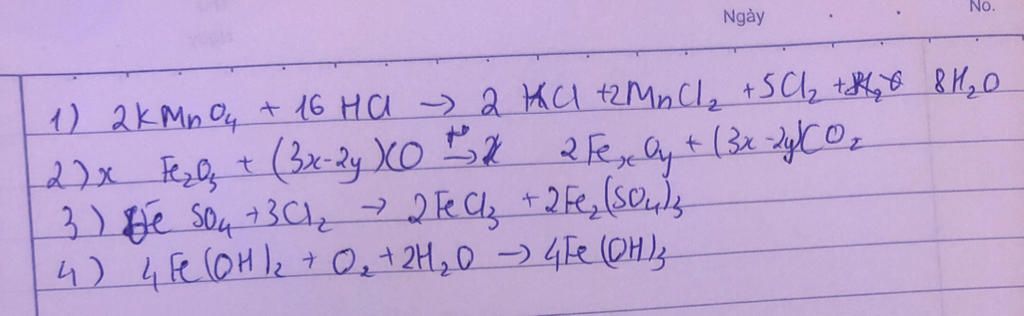 Ngày No.
1) 2KMnO₄ + 16 HCl → 2 KCl + 2MnCl₂ + 5Cl₂ + 8H₂O
2) x Fe₂O₃ + (3x-2y)CO t°→ 2FeₓOᵧ + (3x-2y)CO₂
3) Fe SO₄ + 3Cl₂ → 2FeCl₃ + 2Fe₂(SO₄)₃
4) 4Fe(OH)₂ + O₂ + 2H₂O → 4Fe(OH)₃